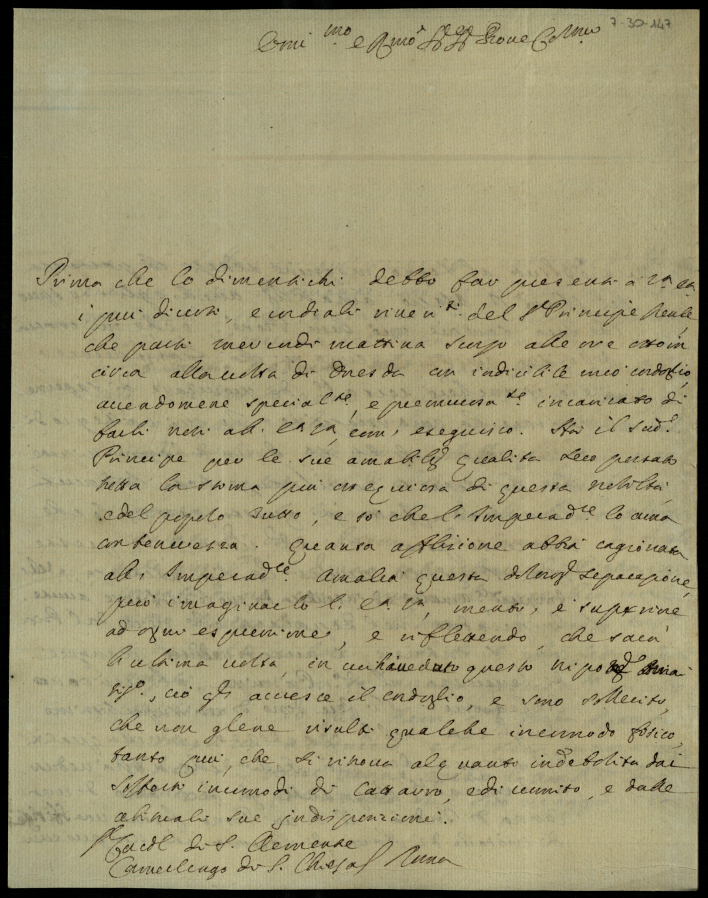 7-30-147
Emi.mo e Rmo Sig.r Sig.r Prone Colmo
Prima che lo dimentichi debbo far presenti a V.ra Em.za
i più divoti, e cordiali riveriti del S.r Principe Reale,
che partì mercordì mattina scorso alle ore otto in
circa alla volta di Dresda con indicibile mio cordoglio,
avendomene special.te, e premurosa.te incaricato di
farli noti all' Em.za V.ra, come eseguisco. Hà il sud.o
Principe per le sue amabili qualità seco portato
tutta la stima più ossequiosa di questa nobiltà,
e del popolo tutto, e sò che l'Imperad.ce lo ama
con tenerezza. Quanta afflizione abbia cagionata
all' Imperad.ce Amalia questa separazione,
può imaginarlo l' Em.za V.ra, mentre è superiore
ad ogni espressione, e riflettendo, che sarà
l'ultima volta, in cui hà veduto questo nipote
ciò gli accresce il cordoglio, e sono sollecito,
che non gliene risulti qualche incomodo fisico,
tanto più, che si ritrova alquanto indebolita dai
sofferti incomodi di Catarro, e di vomito, e dalle
abituali sue indisposizioni.
S.r Card.l di S. Clemente
Camerlengo di S. Chiesa Roma